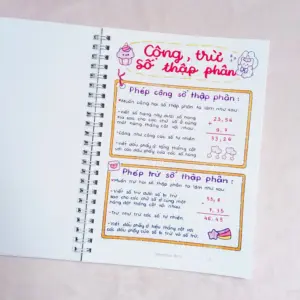 Cộng, trừ
số thập phân
Phép cộng số thập phân:
Muốn cộng hai số thập phân ta làm như sau:
- Viết số hạng này dưới số hạng
kia sao cho các chữ số ở cùng
một hàng thẳng cột với nhau.
- Cộng như cộng các số tự nhiên.
- Viết dấu phẩy ở tổng thẳng cột
với các dấu phẩy của các số hạng.
+
Phép trừ số thập phân:
Muốn trừ hai số thập phân ta làm như sau:
- Viết số trừ dưới số bị trừ
sao cho các chữ số ở cùng một
hàng thẳng cột với nhau.
- Trừ như trừ các số tự nhiên.
- Viết dấu phẩy ở hiệu thẳng cột với
các dấu phẩy của số bị trừ và số trừ.
-